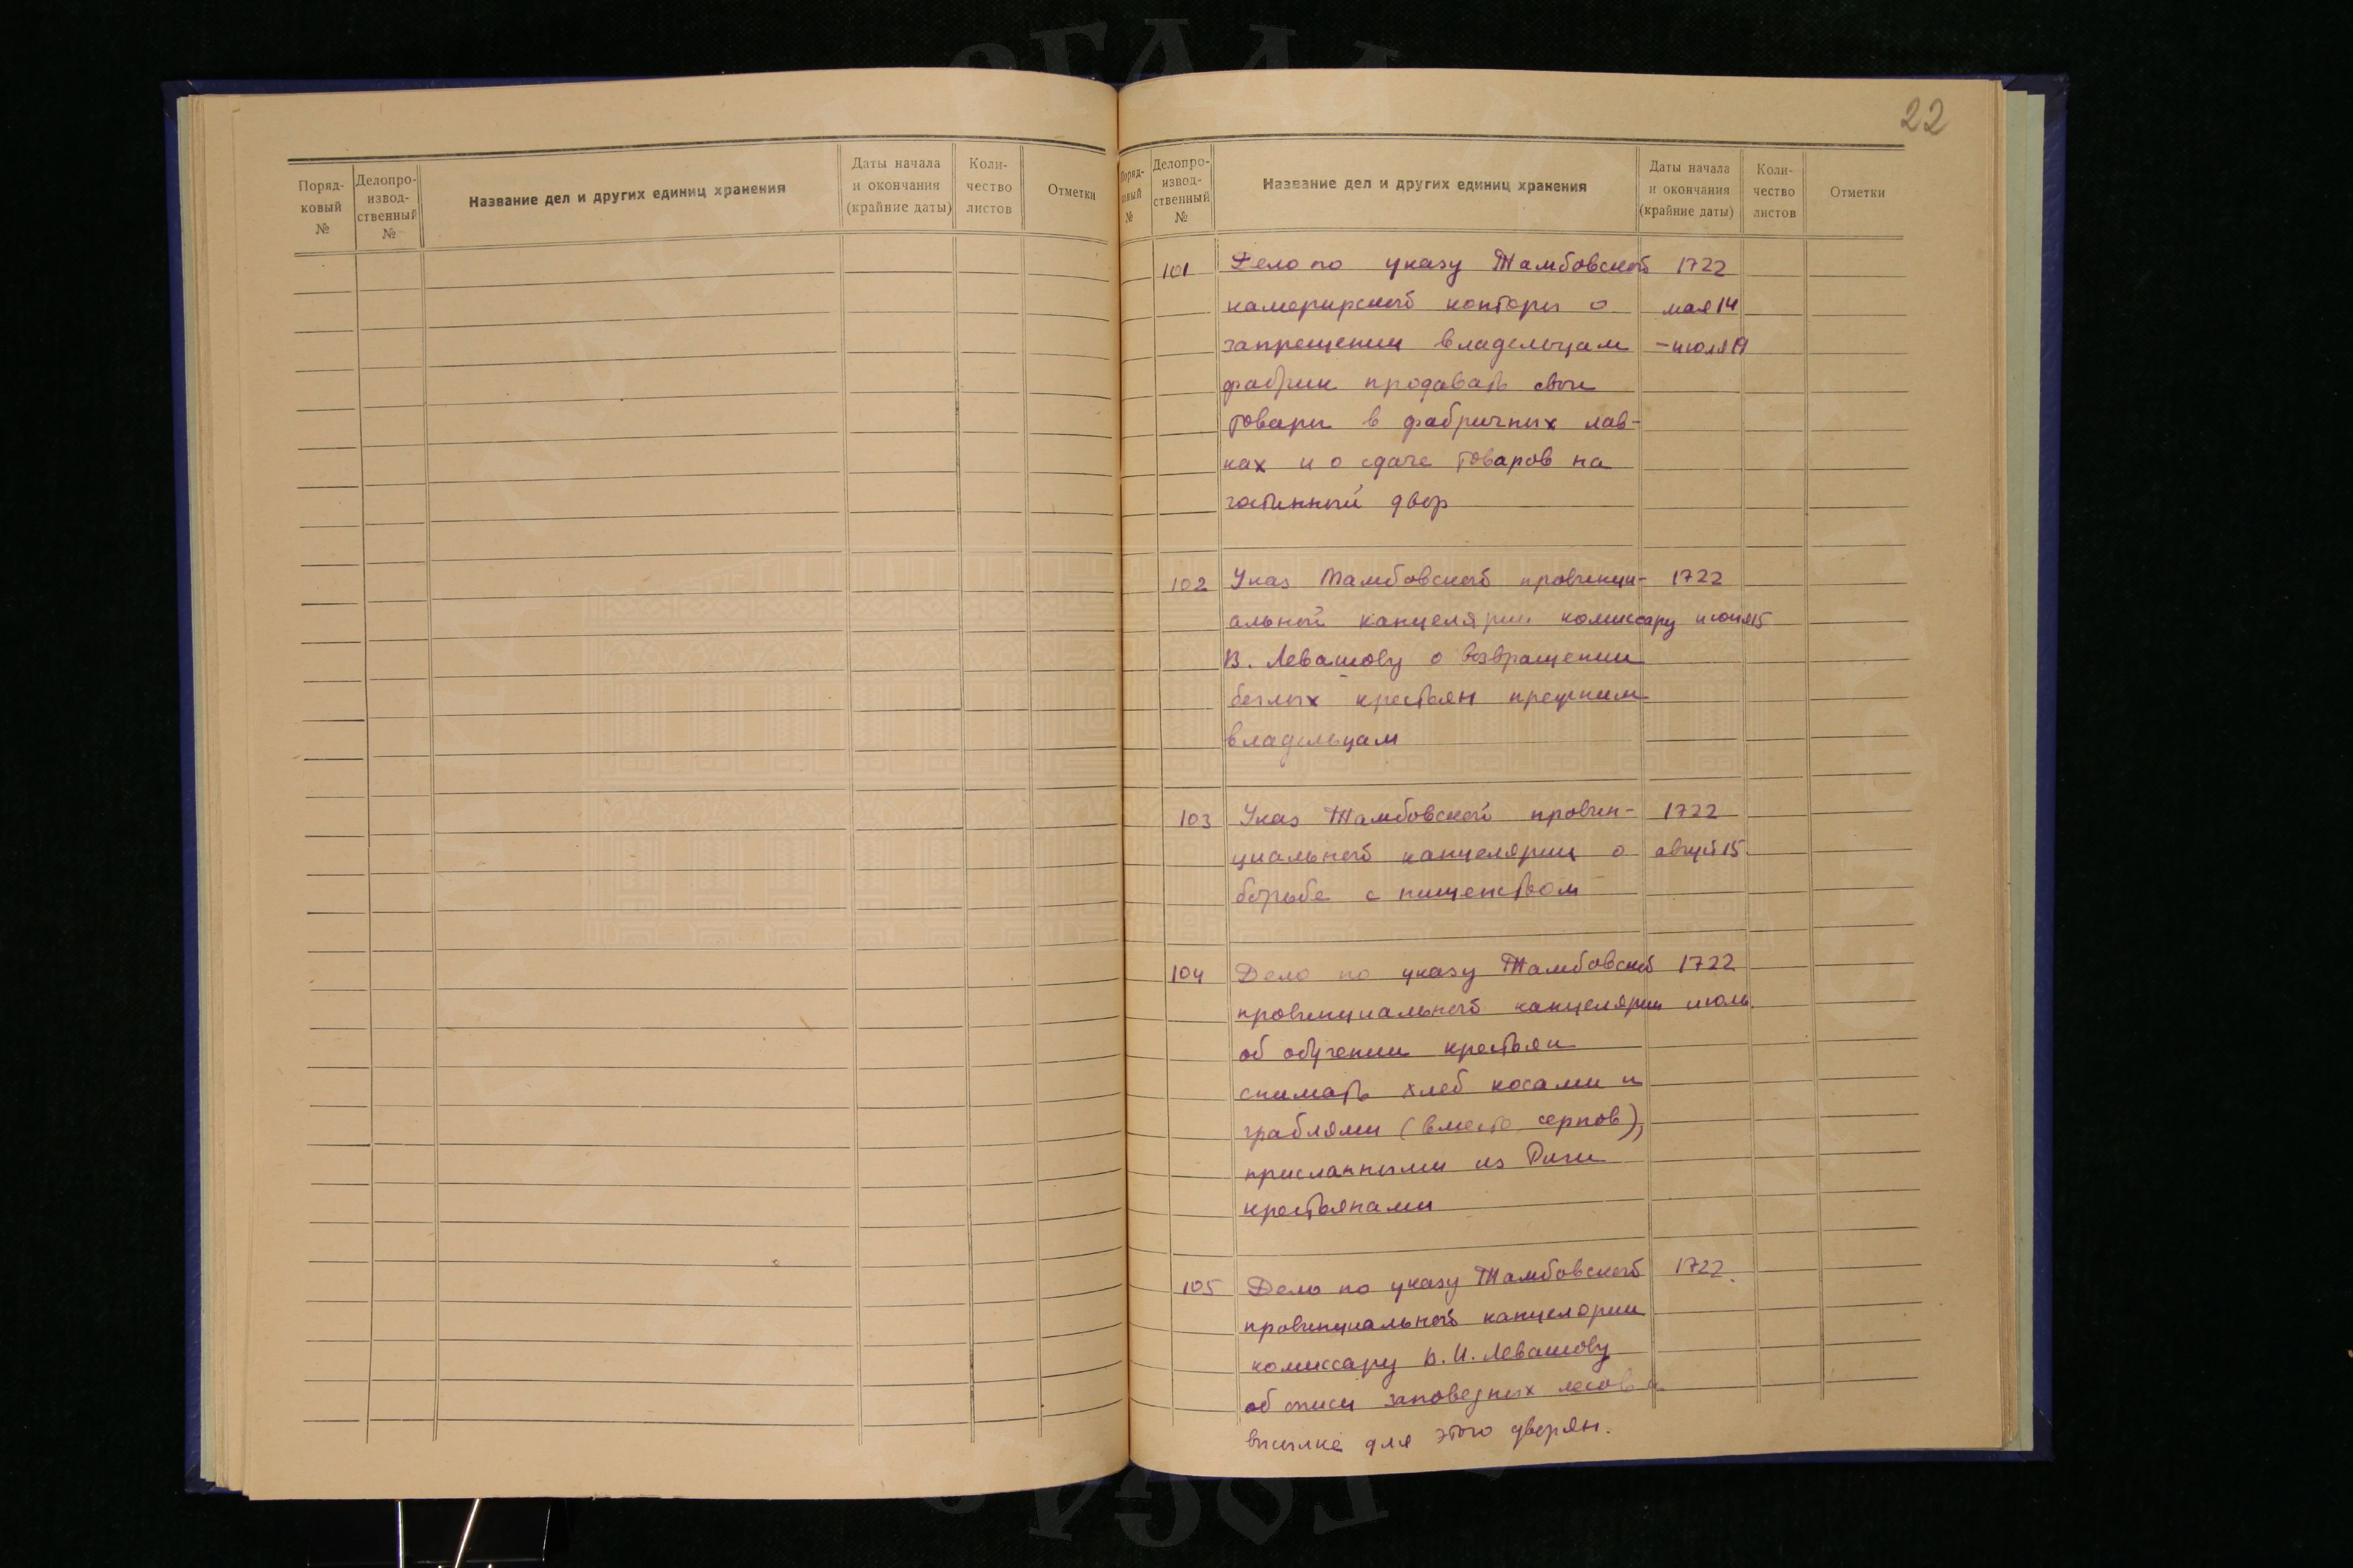 22
Поряд-
ковый
№
Делопро-
извод-
ственный
№
Название дел и других единиц хранения
Даты начала
и окончания
(крайние даты)
Коли-
чество
листов
Отметки
Поряд-
ковый
№
Делопро-
извод-
ственный
№
Название дел и других единиц хранения
Даты начала
и окончания
(крайние даты)
Коли-
чество
листов
Отметки
101 Дело по указу Тамбовской 1722
камерирской конторы о мая 14
запрещении владельцам - июля 19
фабрик продавать свои
товары в фабричных лав-
ках и о сдаче товаров на
гостинный двор
102 Указ Тамбовской провинци- 1722
альной канцелярии комиссару июня 15
В. Левашову о возвращении
беглых крестьян прежним
владельцам
103 Указ Тамбовской провин- 1722
циальной канцелярии о август 15
борьбе с нищенством
104 Дело по указу Тамбовской 1722
провинциальной канцелярии июль.
об обучении крестьян
снимать хлеб косами и
граблями (вместо серпов),
присланными из Риги
крестьянами
105 Дело по указу Тамбовской 1722.
провинциальной канцелярии
комиссару В. И. Левашову
об описи заповедных лесов и
высылке для этого дворян.